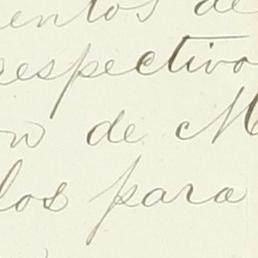 entos de
respectivo
on de M
los para